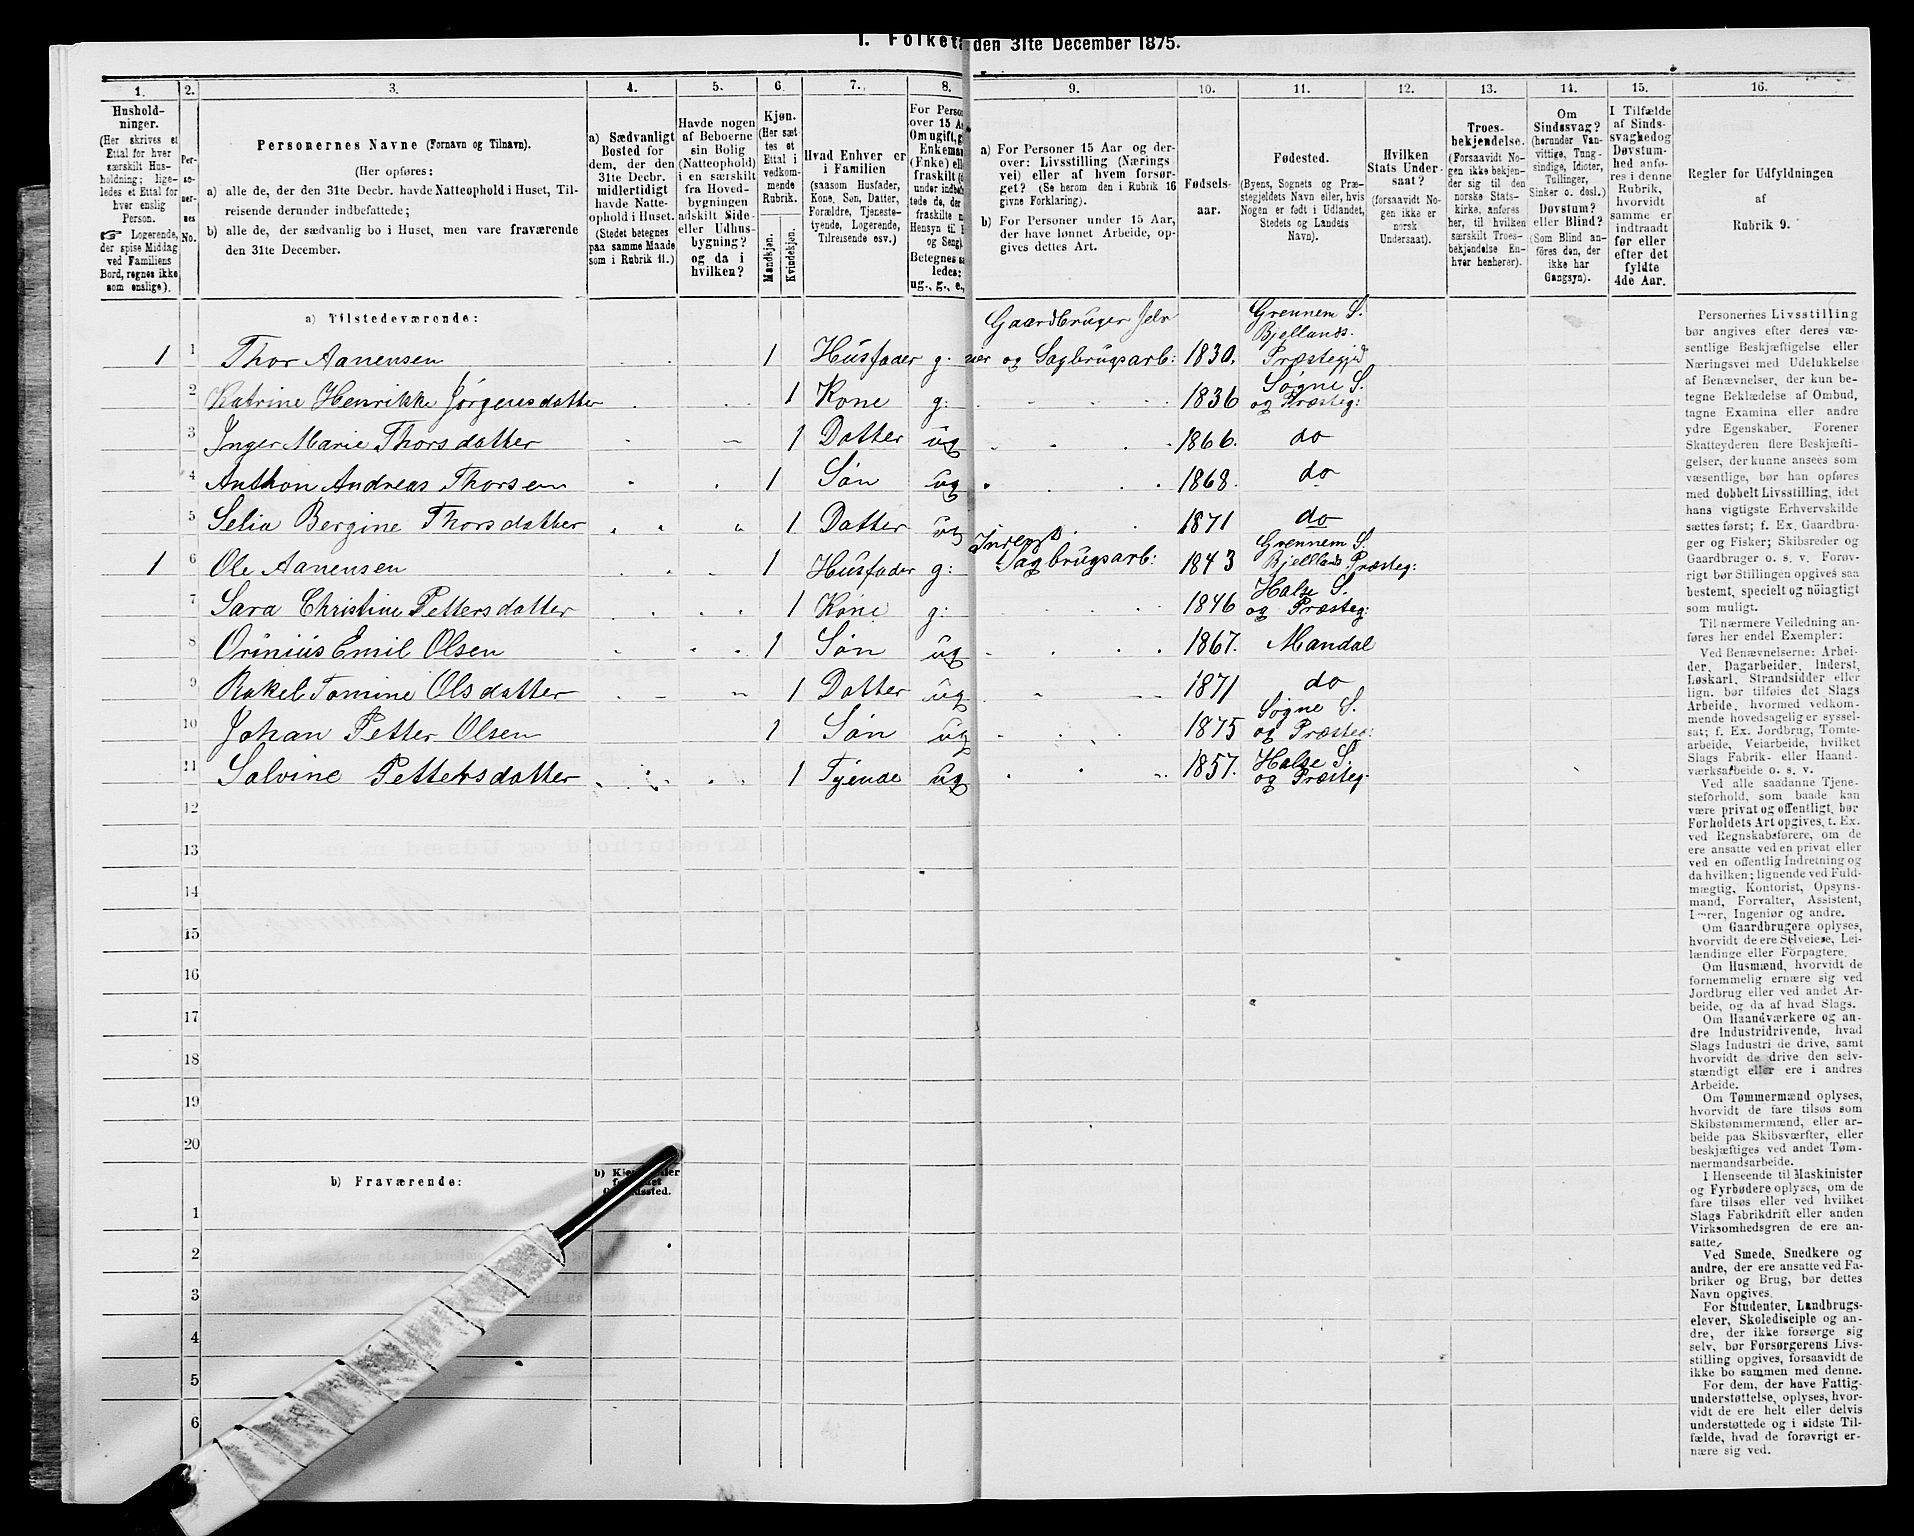 1. Folket
den 31te December 1875.
1.
2.
3.
4.
5.
6.
7.
8.
9.
10.
11.
12.
13.
14.
15.
16.
Hushold-
ninger.
(Her skrives et
Ettal for hver
særskilt Hus-
holdning; lige-
ledes et Ettal for
hver enslig
Person.
☞ Logerende,
der spise Middag
ved Familiens
Bord, regnes ikke
som enslige).
Per-
so-
ner-
nes
No.
Personernes Navne (Fornavn og Tilnavn).
(Her opføres:
a) alle de, der den 31te Decbr. havde Natteophold i Huset, Til-
reisende derunder indbefattede;
b) alle de, der sædvanlig bo i Huset, men vare fraværende
den 31te December.
a) Sædvanligt
Bosted for
dem, der den
31te Decbr.
midlertidigt
havde Natte-
ophold i Huset.
(Stedet betegnes
paa samme Maade
som i Rubrik 11.)
Havde nogen
af Beboerne
sin Bolig
(Natteophold)
i en særskilt
fra Hoved-
bygningen
adskilt Side-
eller Udhus-
bygning?
og da i
hvilken?
Kjøn.
(Her sæt-
tes et
Ettal i
vedkom-
mende
Rubrik.
Mandkjøn.
Kvindekjøn.
Hvad Enhver er
i Familien
(saasom Husfader,
Kone, Søn, Datter,
Forældre, Tjeneste-
tyende, Logerende,
Tilreisende osv.)
For Person
over 15 A
Om ugift, g
Enkeman
(Fnke) ell
fraskilt (
under indbef
tede de, der
fraskilte
Hensyn til
og Seng).
Betegnes sa
ledes:
ug., g., e.,
a) For Personer 15 Aar og der-
over: Livsstilling (Nærings
vei) eller af hvem forsør-
get? (Se herom den i Rubrik 16
givne Forklaring).
b) For Personer under 15 Aar,
der have lønnet Arbeide, op-
gives dettes Art.
Fødsels-
aar.
Fødested.
(Byens, Sognets og Præ-
stegjeldets Navn eller, hvis
Nogen er født i Udlandet,
Stedets og Landets
Navn).
Hvilken
Stats Under-
saat?
(forsaavidt No-
gen ikke er
norsk
Undersaat).
Troes-
bekjendelse.
(Forsaavidt No-
gen ikke bekjen-
der sig til den
norske Stats-
kirke, anføres
her, til hvilken
særskilt Troes-
bekjendelse En-
hver henhører).
Om
Sindssvag?
(herunder Van-
vittige, Tung-
sindige, Idioter,
Tullinger,
Sinker o. desl.)
Døvstum?
eller Blind?
(Som Blind an-
føres den, der
ikke har
Gangsyn).
I Tilfælde
af Sinds-
svaghed og
Døvstum-
hed anfø-
res i denne
Rubrik,
hvorvidt
samme er
indtraadt
før eller
efter det
fyldte
4de Aar.
Regler for Udfyldningen
af
Rubrik 9.
a) Tilstedeværende:
Gaardbruger Selv Grennem S.
Bjellands
1 1 Thor Aanensen 1 Husfader g: eier og Sagbrugsarb: 1830. Præstegjd
Søgne S.
2 Katrine Henrikke Jörgensdatter 1 Kone g: 1836 og Præsteg:
3 Inger Marie Thorsdatter 1 Datter ug 1866. do
4 Anthon Andreas Thorsen 1 Søn ug 1868. do
5 Selia Bergine Thorsdatter 1 Datter ug 1871 do
Inderst Grennem S.
1 6 Ole Aanensen 1 Husfader g: Sagbrugsarb: 1843 Bjellands Præsteg:
Halse S.
7 Sara Christine Pettersdatter 1 Kone g: 1846 og Præsteg:
8 Orinius Emil Olsen 1 Søn ug 1867. Mandal
9 Rakel Tomine Olsdatter 1 Datter ug 1871 do
Søgne S.
10 Johan Petter Olsen 1 Søn ug 1875 og Præsteg:
Halse S.
11 Salvine Pettersdatter 1 Tyende ug 1857. og Præsteg:
12
13
14
15
16
17
18
19
20
b) Fraværende:
b)
1
2
3
4
5
6
Personernes Livsstilling
bør angives efter deres væ-
sentlige Beskjæftigelse eller
Næringsvei med Udelukkelse
af Benævnelser, der kun be-
tegne Beklædelse af Ombud,
tagne Examina eller andre
ydre Egenskaber. Forener
Skatteyderen flere Beskjæfti-
gelser, der kunne ansees som
væsentlige, bør han opføres
med dobbelt Livsstilling, idet
hans vigtigste Erhvervskilde
sættes først; f. Ex. Gaardbru-
ger og Fisker; Skibsreder og
Gaardbruger o. s. v. Forøv-
rigt bør Stillingen opgives saa
bestemt, specielt og nöiagtigt
som muligt.
Til nærmere Veiledning an-
føres her endel Exempler:
Ved Benævnelserne: Arbei-
der, Dagarbeider, Inderst,
Løskarl, Strandsidder eller
lign. bør tilføies det Slags
Arbeide, hvormed vedkom-
mende hovedsagelig er syssel-
sat; f. Ex. Jordbrug, Tomte-
arbeide, Veiarbeide, hvilket
Slags Fabrik- eller Haand-
værksarbeide o. s. v.
Ved alle saadanne Tjene-
steforhold, som baade kan
være privat og offentligt, bør
Forholdets Art opgives, t. Ex.
ved Regnskabsførere, om de
ere ansatte ved en privat eller
ved en offentlig Indretning og
da hvilken; lignende ved Fuld-
mægtig, Kontorist, Opsyns-
mand, Forvalter, Assistent,
Lærer, Ingeniør og andre.
Om Gaardbrugere oplyses,
hvorvidt de ere Selveiere, Lei-
lændinge eller Forpagtere.
Om Husmænd, hvorvidt de
fornemmelig ernære sig ved
Jordbrug eller ved andet Ar-
beide, og da af hvad Slags.
Om Haandværkere og an-
dre Industridrivende, hvad
Slags Industri de drive, samt
hvorvidt de drive den selv-
stændigt eller ere i andres
Arbeide.
Om Tømmermænd oplyses,
hvorvidt de fare tilsøs som
Skibstømmermænd, eller ar-
beide paa Skibsværfter, eller
beskjæftiges ved andet Tøm-
mermandsarbeide.
I Henseende til Maskinister
og Fyrbødere oplyses, om de
fare tilsøs eller ved hvilket
Slags Fabrikdrift eller anden
Virksomhedsgren de ere an-
satte.
Ved Smede, Snedkere og
andre, der ere ansatte ved Fa-
briker og Brug, bør dettes
Navn opgives.
For Studenter, Landbrugs-
elever, Skoledisciple og an-
dre, der ikke forsørge sig
selv, bør Forsørgerens Livs-
stilling opgives, forsaavidt de
ikke bo sammen med denne.
For dem, der have Fattig-
understøttelse, oplyses, hvor-
vidt de ere helt eller delvis
understøttede og i sidste Til-
fælde, hvad de forøvrigt er-
nære sig ved.